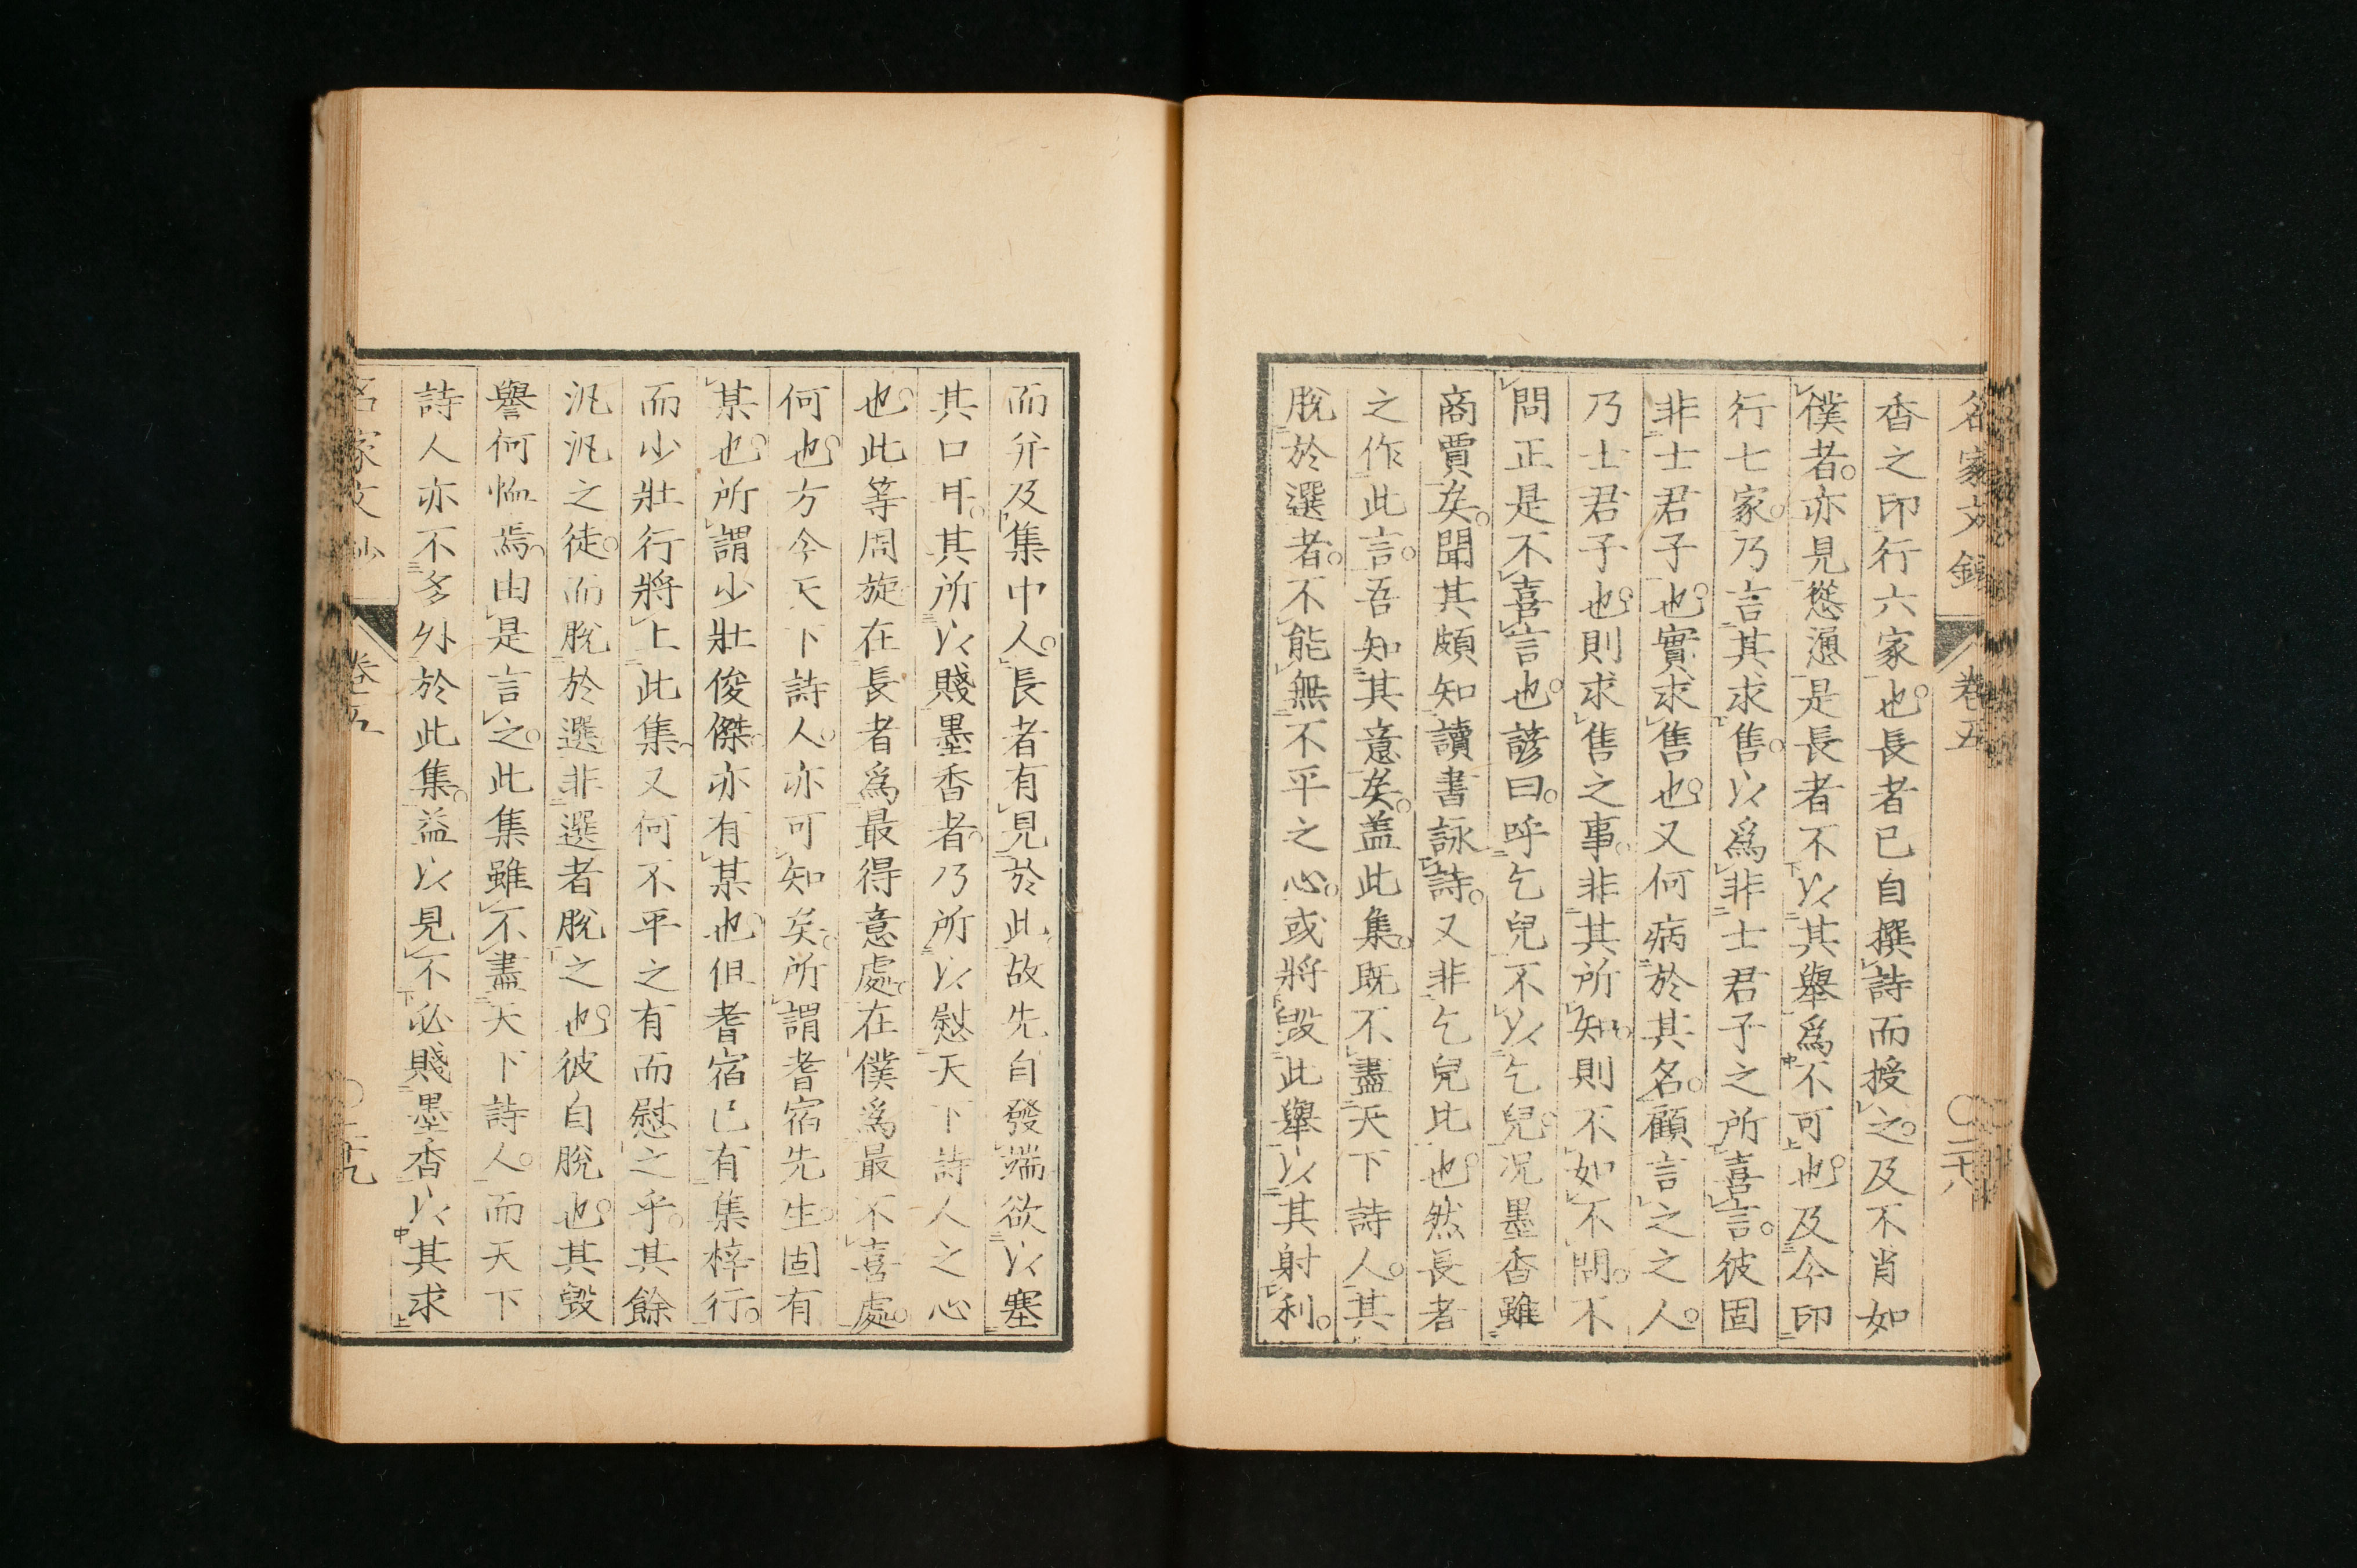 名家文鈔 卷五 〇二十八
香之印行六家也長者已自撰詩而授之及不肖如
僕者亦見慫慂是長者不以其擧爲不可也及今印
行七家乃言其求售以爲非士君子之所喜言彼固
非士君子也實求售也又何病於其名顧言之之人
乃士君子也則求售之事非其所知則不如不問不
問正是不喜言也諺曰呼乞兒不以乞兒況墨香雖
商賈矣聞其頗知讀書詠詩又非乞兒比也然長者
之作此言吾知其意矣蓋此集既不盡天下詩人其
脫於選者不能無不平之心或將毀此擧以其射利
而幷及集中人長者有見於此故先自發端欲以塞
其口耳其所以賤墨香者乃所以慰天下詩人之心
也此等周旋在長者爲最得意處在僕爲最不喜處
何也方今天下詩人亦可知矣所謂耆宿先生固有
某也所謂少壯俊傑亦有某也但耆宿已有集梓行
而少壯行將上此集又何不平之有而慰之乎其餘
汎汎之徒而脫於選非選者脫之也彼自脫也其毀
譽何恤焉由是言之此集雖不盡天下詩人而天下
詩人亦不多外於此集益以見不必賤墨香以其求
名家文鈔 卷五 〇二十九